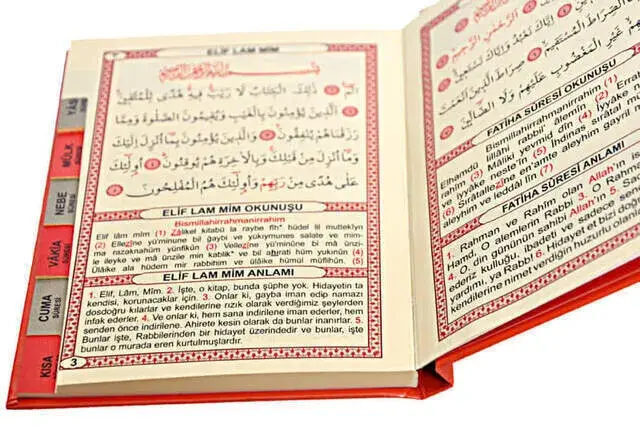 ELİF LAM MİM
الٓمٓ ذٰلِكَ الْكِتَابُ لَا رَيْبَ فِيهِ هُدًى لِلْمُتَّقِينَ
اَلَّذِينَ يُؤْمِنُونَ بِالْغَيْبِ وَيُقِيمُونَ الصَّلٰوةَ وَمِمَّا
رَزَقْنَاهُمْ يُنْفِقُونَ وَالَّذِينَ يُؤْمِنُونَ بِمَا اُنْزِلَ اِلَيْكَ
وَمَا اُنْزِلَ مِنْ قَبْلِكَ وَبِالْاٰخِرَةِ هُمْ يُوقِنُونَ اُولٰٓئِكَ
عَلٰى هُدًى مِنْ رَبِّهِمْ وَاُولٰٓئِكَ هُمُ الْمُفْلِحُونَ
ELİF LAM MİM OKUNUŞU
Bismillahirrahmanirrahim
Elif lâm mîm (1) Zâlikel kitâbü la raybe fîh* hüdel lil mutteklyn
(2) Ellezîne yü'minune bil ğaybi ve yükıymunes salate ve mim-
ma razaknahüm yünfikun (3) Vellezîne yü'minûne bi mâ ünzi-
le ileyke ve mâ ünzile min kablik* ve bil ahırati hüm yukınun (4)
Ülâike ala hüdem mir rabbihim ve ülâike hümül müflihûn. (5)
ELİF LAM MİM ANLAMI
1. Elif, Lâm, Mîm. 2. İşte, o kitap, bunda şüphe yok. Hidayetin ta
kendisi, korunacaklar için. 3. Onlar ki, gayba iman edip namazı
dosdoğru kılarlar ve kendilerine rızık olarak verdiğimiz şeylerden
infak ederler. 4. Ve onlar ki, hem sana indirilene iman ederler, hem
senden önce indirilene. Ahirete kesin olarak da bunlar inanırlar. 5.
Bunlar işte, Rabbilerinden bir hidayet üzerindedir ve bunlar, işte
bunlar o murada eren kurtulmuşlardır.
3
YÂS
MÜLK
SÛRESİ
NEBE
SÛRESİ
VÂKIA
SÛRESİ
CUMA
SÛRESİ
KISA
الرَّحْمٰنِ الرَّحِيمِ
اِيَّاكَ نَعْبُدُ وَاِيَّاكَ نَسْتَعِينُ
الصِّرَاطَ الْمُسْتَقِيمَ صِرَاطَ الَّذِينَ اَنْعَمْتَ
غَيْرِ الْمَغْضُوبِ عَلَيْهِمْ وَلَا الضَّالِّينَ
FATİHA SÛRESİ OKUNUŞU
Bismillahirrahmanirrahim (1)
Elhamdü lillâhi rabbil' âlemîn (2) Errahmânir
rahîm (3) Mâliki yevmid dîn (4) İyyâke
ve iyyâke (5) İhdinas
(6) Sırâtalezîne en'amte aleyhim gayril
aleyhim ve leddâl lîn (7)
FATİHA SÛRESİ ANLAMI
1. Rahman ve Rahîm olan Allah'ın
Hamd, O alemlerin Rabbi 3. O
4. O din gününün sahibi Allah'ın 5.
ederiz kulluğu, ibadeti ve sadece senden
yardımı, ya Rabbi 6. Hidayet et bizi
kendilerine nimet verdiğin